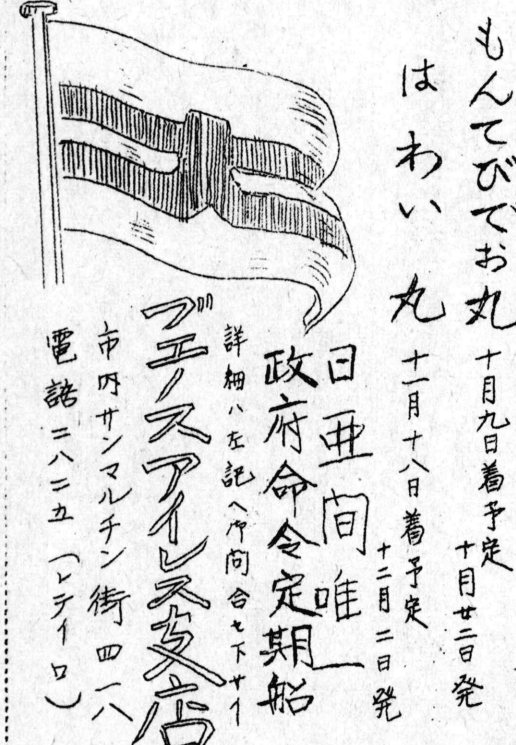 もんてびでお丸 十月九日着予定
十月廿二日発
はわい丸 十一月十八日着予定
十二月二日発
日亜間唯一
政府命令定期船
詳細ハ左記ヘ御問合セ下サイ
ブエノスアイレス支店
市内サンマルチン街四一八
電話二八二五(レティロ)